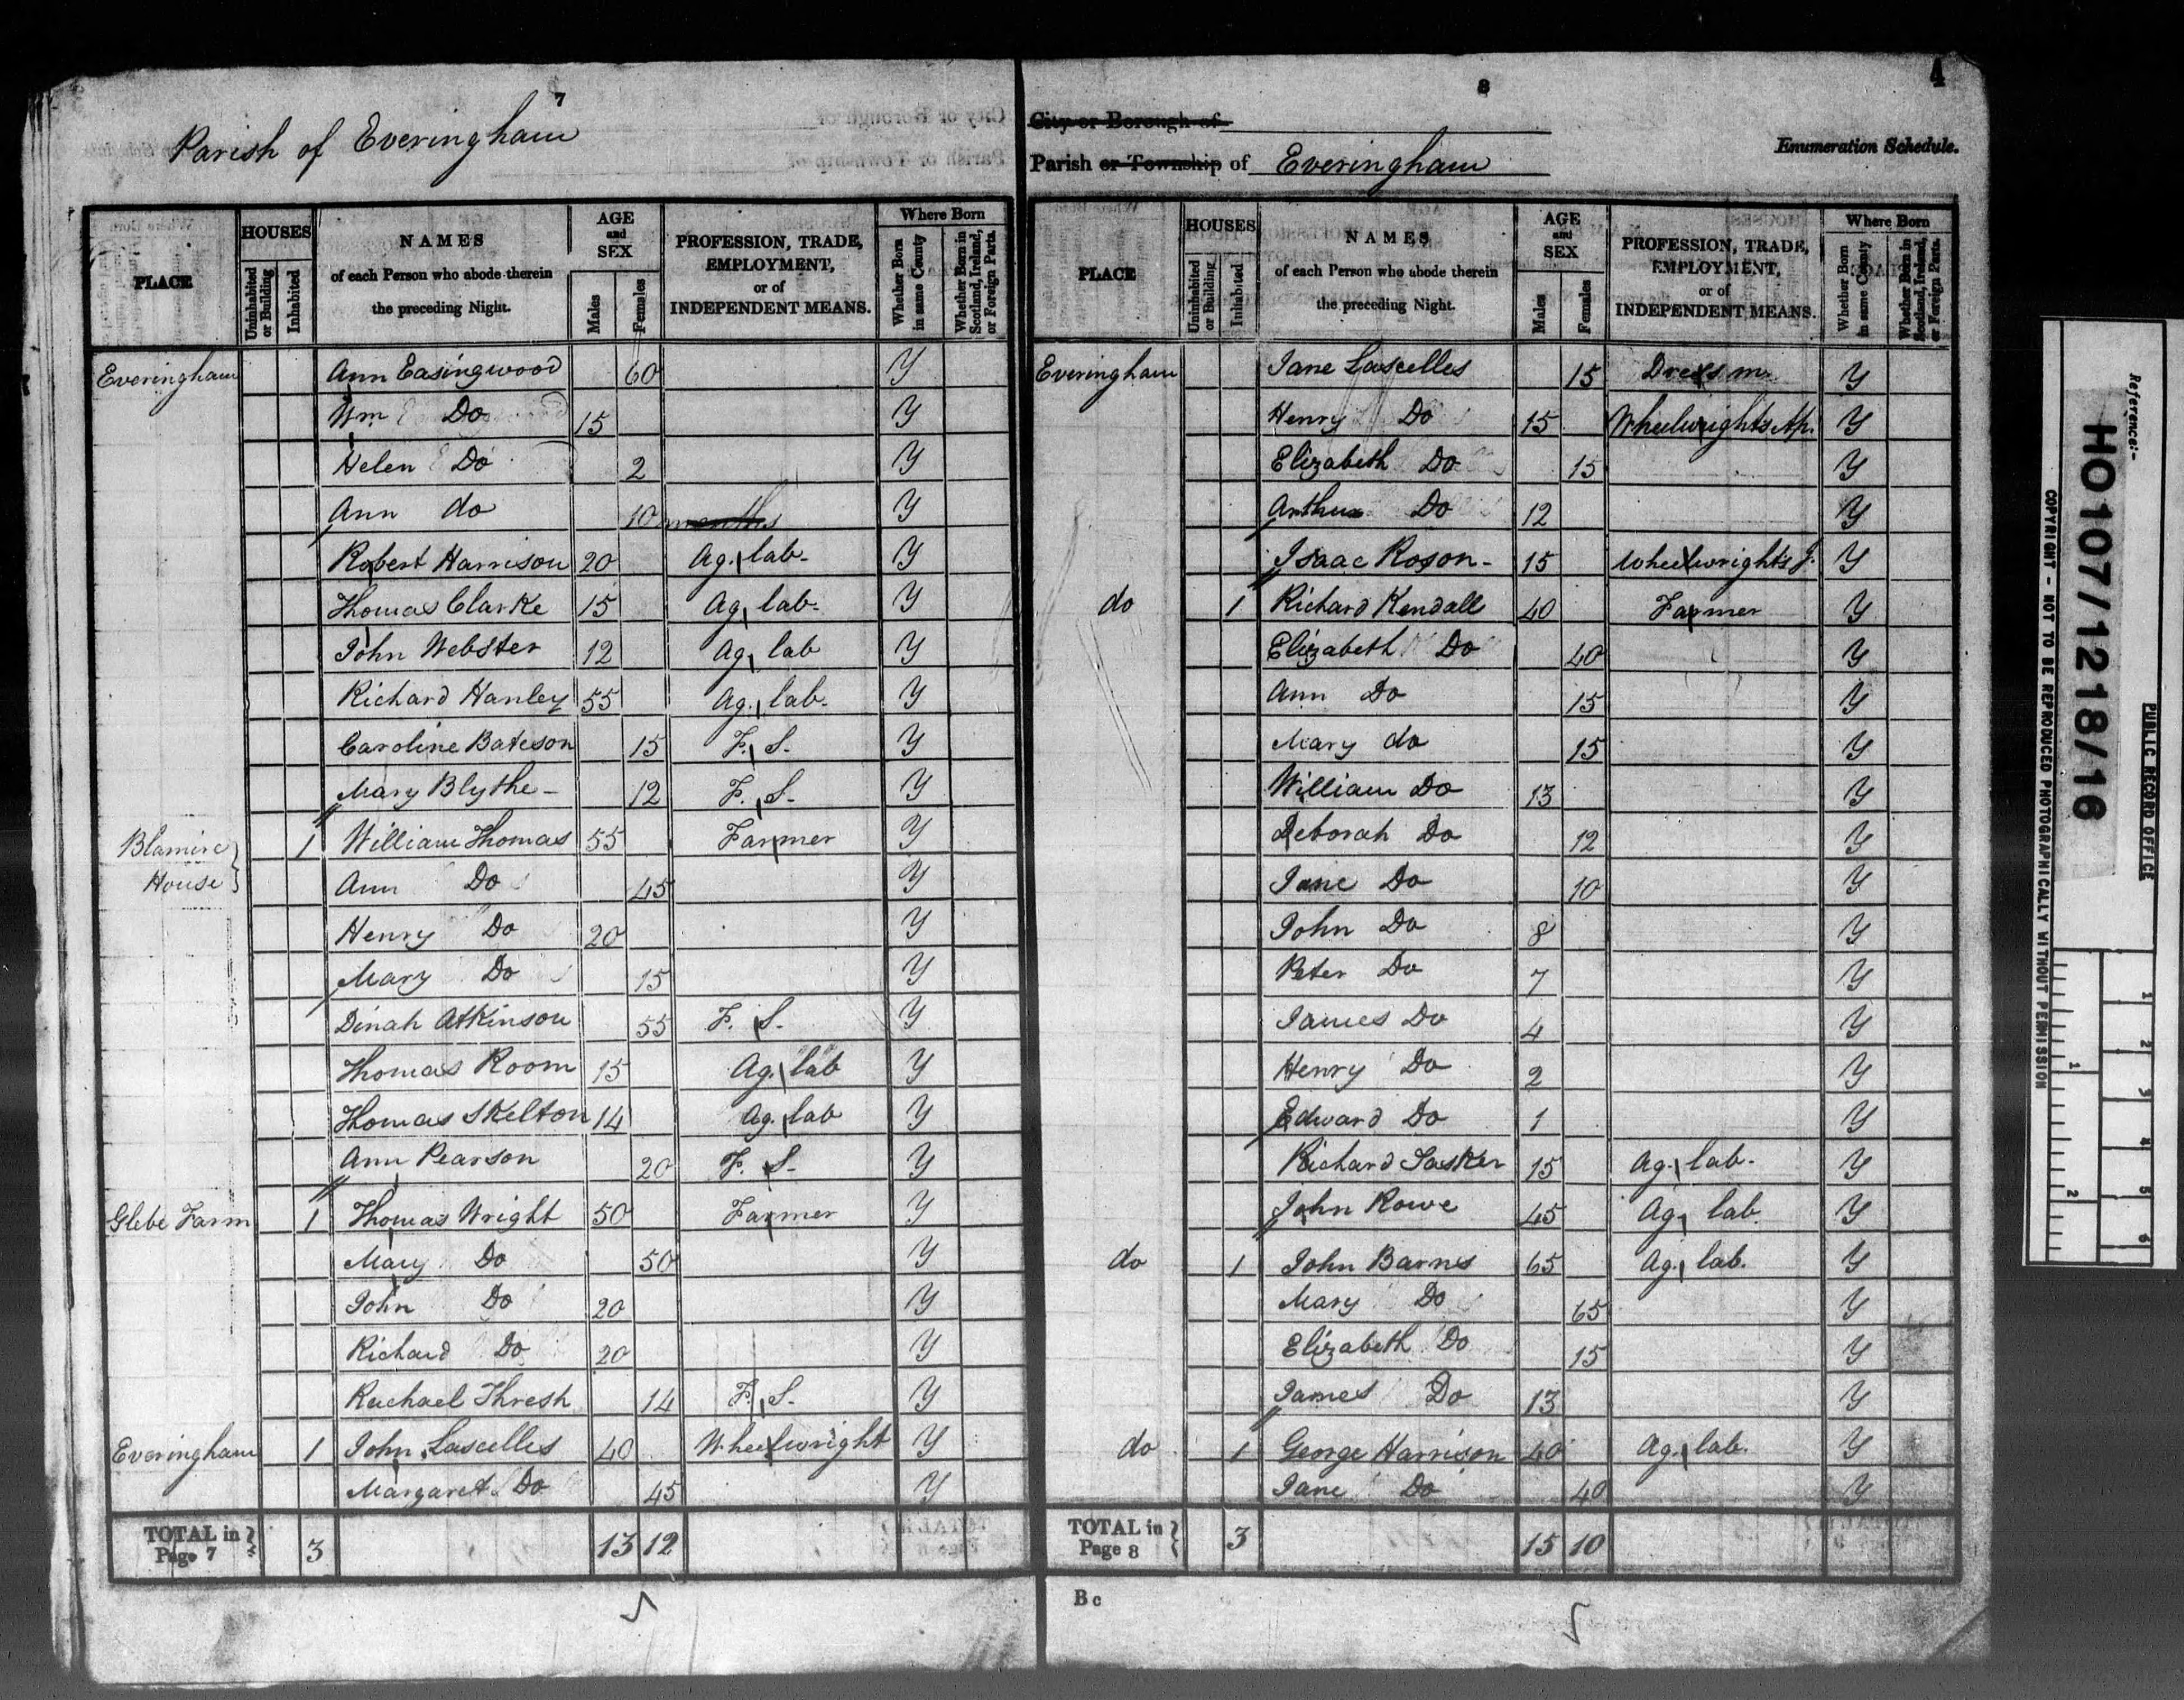 7
Parish of Everingham
PLACE
HOUSES
Uninhabited or Building
Inhabited
NAMES
of each Person who abode therein
the preceding Night.
AGE
and
SEX
Males
Females
PROFESSION, TRADE,
EMPLOYMENT,
or of
INDEPENDENT MEANS.
Where Born
Whether Born in same County
Whether Born in Scotland, Ireland, or Foreign Parts.
Everingham Ann Easingwood 60 Y
Wm Do 15 Y
Helen Do 2 Y
Ann do 10 months Y
Robert Harrison 20 Ag. lab. Y
Thomas Clarke 15 Ag. lab. Y
John Webster 12 Ag. lab Y
Richard Hanley 55 Ag. lab. Y
Caroline Bateson 15 F. S. Y
Mary Blythe 12 F. S. Y
Blamire House 1 William Thomas 55 Farmer Y
Ann Do 45 Y
Henry Do 20 Y
Mary Do 15 Y
Dinah Atkinson 55 F. S. Y
Thomas Room 15 Ag. lab Y
Thomas Skelton 14 Ag. lab Y
Ann Pearson 20 F. S. Y
Glebe Farm 1 Thomas Wright 50 Farmer Y
Mary Do 50 Y
John Do 20 Y
Richard Do 20 Y
Rachael Thresh 14 F. S. Y
Everingham 1 John Lascelles 40 Wheelwright Y
Margaret Do 45 Y
TOTAL in Page 7 3 13 12
8
4
City or Borough of
Parish or Township of Everingham
Enumeration Schedule.
PLACE
HOUSES
Uninhabited or Building
Inhabited
NAMES
of each Person who abode therein
the preceding Night.
AGE
and
SEX
Males
Females
PROFESSION, TRADE,
EMPLOYMENT,
or of
INDEPENDENT MEANS.
Where Born
Whether Born in same County
Whether Born in Scotland, Ireland, or Foreign Parts.
Everingham Jane Lascelles 15 Dress m. Y
Henry Do 15 Wheelwright's Ap. Y
Elizabeth Do 15 Y
Arthur Do 12 Y
Isaac 15 Wheelwright's J. Y
do 1 Richard Kendall 40 Farmer Y
Elizabeth Do 40 Y
Ann Do 15 Y
Mary do 15 Y
William Do 13 Y
Deborah Do 12 Y
Jane Do 10 Y
John Do 8 Y
Peter Do 7 Y
James Do 4 Y
Henry Do 2 Y
Edward Do 1 Y
Richard 15 Ag. lab. Y
John Rowe 45 Ag. lab. Y
do 1 John Barnes 65 Ag. lab. Y
Mary Do 65 Y
Elizabeth Do 15 Y
James Do 13 Y
do 1 George Harrison 40 Ag. lab. Y
Jane Do 40 Y
TOTAL in Page 8 3 15 10
B c
Reference:-
HO107/1218/16
PUBLIC RECORD OFFICE
COPYRIGHT - NOT TO BE REPRODUCED PHOTOGRAPHICALLY WITHOUT PERMISSION
1 2 3 4 5 6
1 2